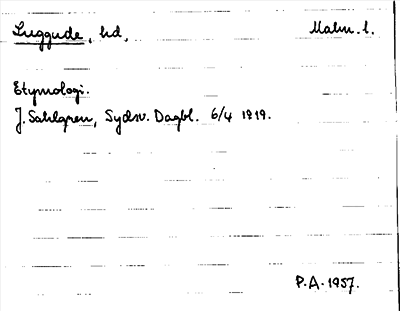 Luggude, hd, Malm. l.
Etymologi.
J. Sahlgren, Sydsv. Dagbl. 6/4 1919.
P.A. 1957.